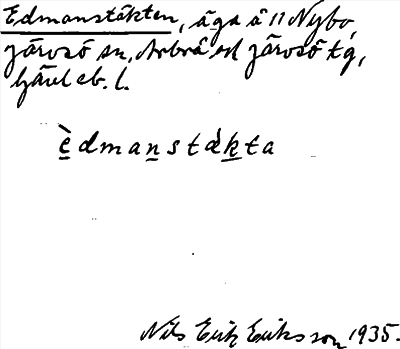 Edmanstäkten, äga å 11 Nybo,
Järvsö sn, Arbrå och Järvsö tg,
Gävleb. l.
èdmanstàkta
Nils Erik Eriksson 1935.